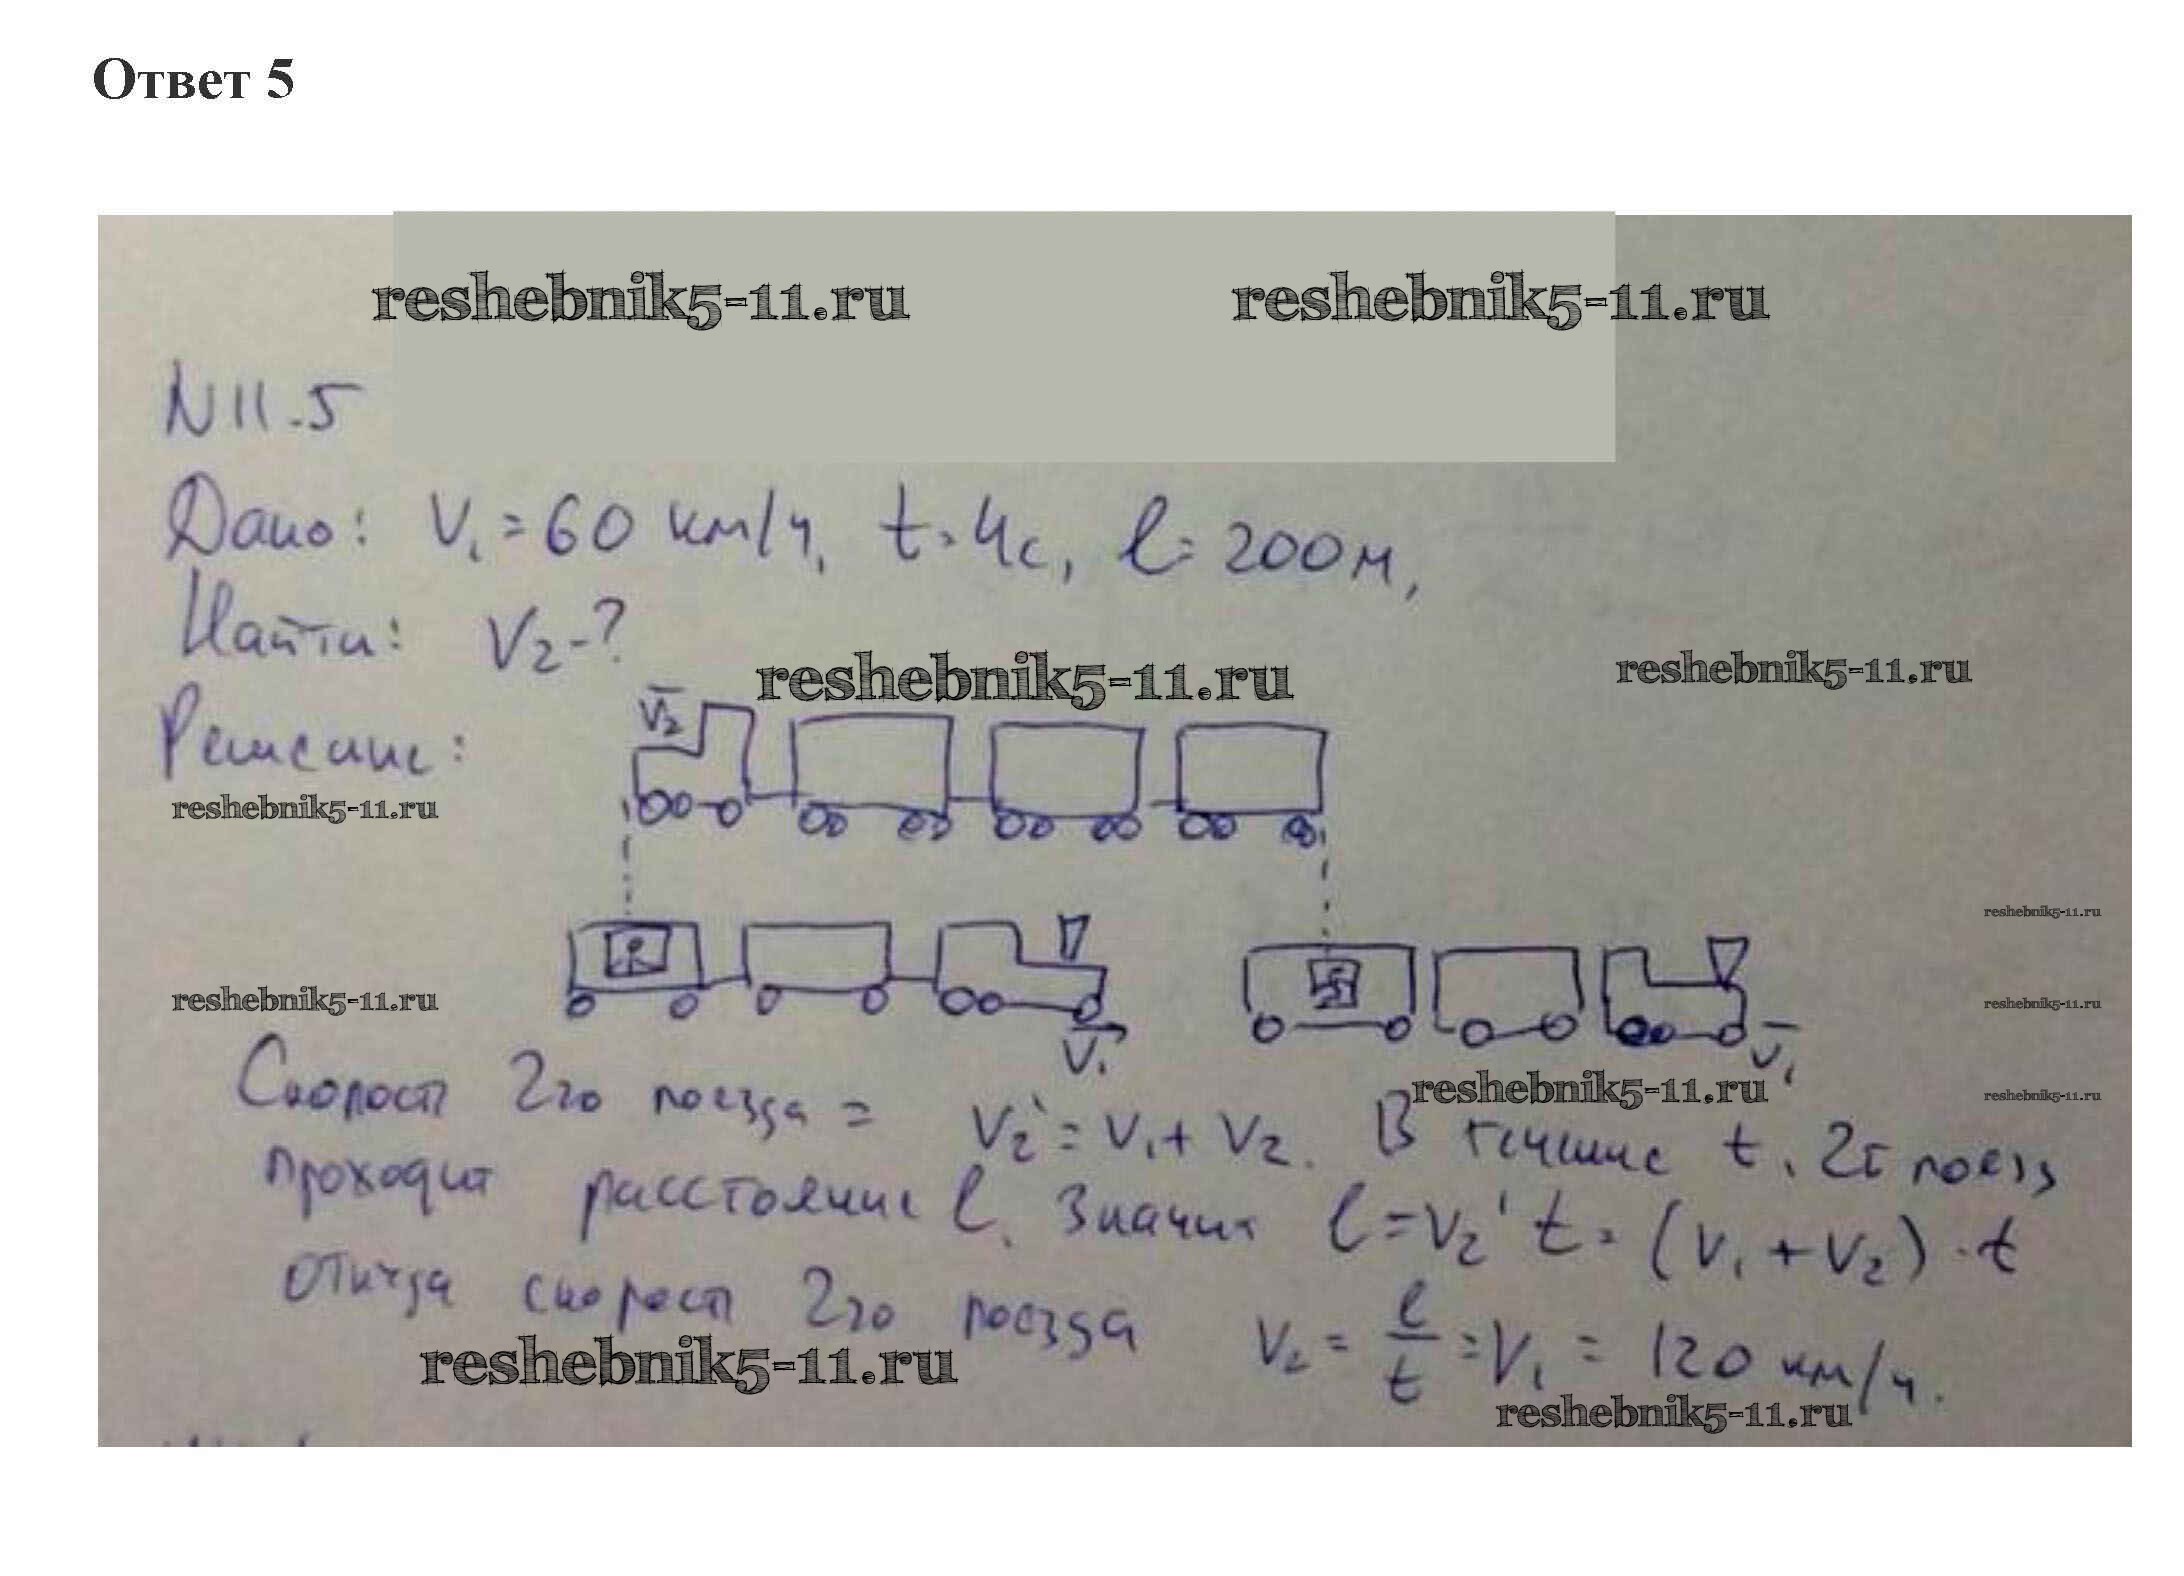 Ответ 5
reshebnik5-11.ru reshebnik5-11.ru
N 11.5
Дано: V₁ = 60 км/ч, t = 4с, l = 200м,
Найти: V₂ - ?
reshebnik5-11.ru reshebnik5-11.ru
V₂
Решение:
reshebnik5-11.ru
reshebnik5-11.ru
reshebnik5-11.ru reshebnik5-11.ru
V₁ V₁
reshebnik5-11.ru reshebnik5-11.ru
Скорость 2го поезда = V₂' = V₁ + V₂. В течение t, 2й поезд
проходит расстояние l. Значит l = V₂' t = (V₁ + V₂) · t
откуда скорость 2го поезда V₂ = l/t = V₁ = 120 км/ч.
reshebnik5-11.ru
reshebnik5-11.ru